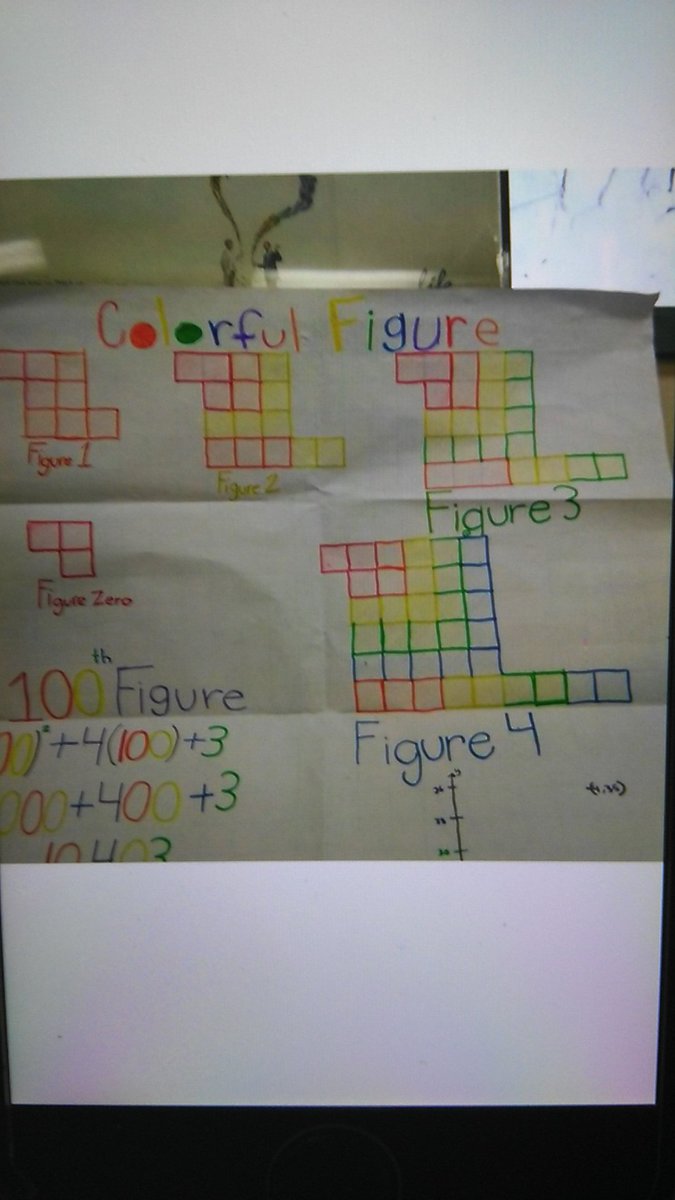 Colorful Figure
Figure 1
Figure 2
Figure 3
Figure Zero
100th Figure
00)²+4(100)+3
000+400+3
10403
Figure 4